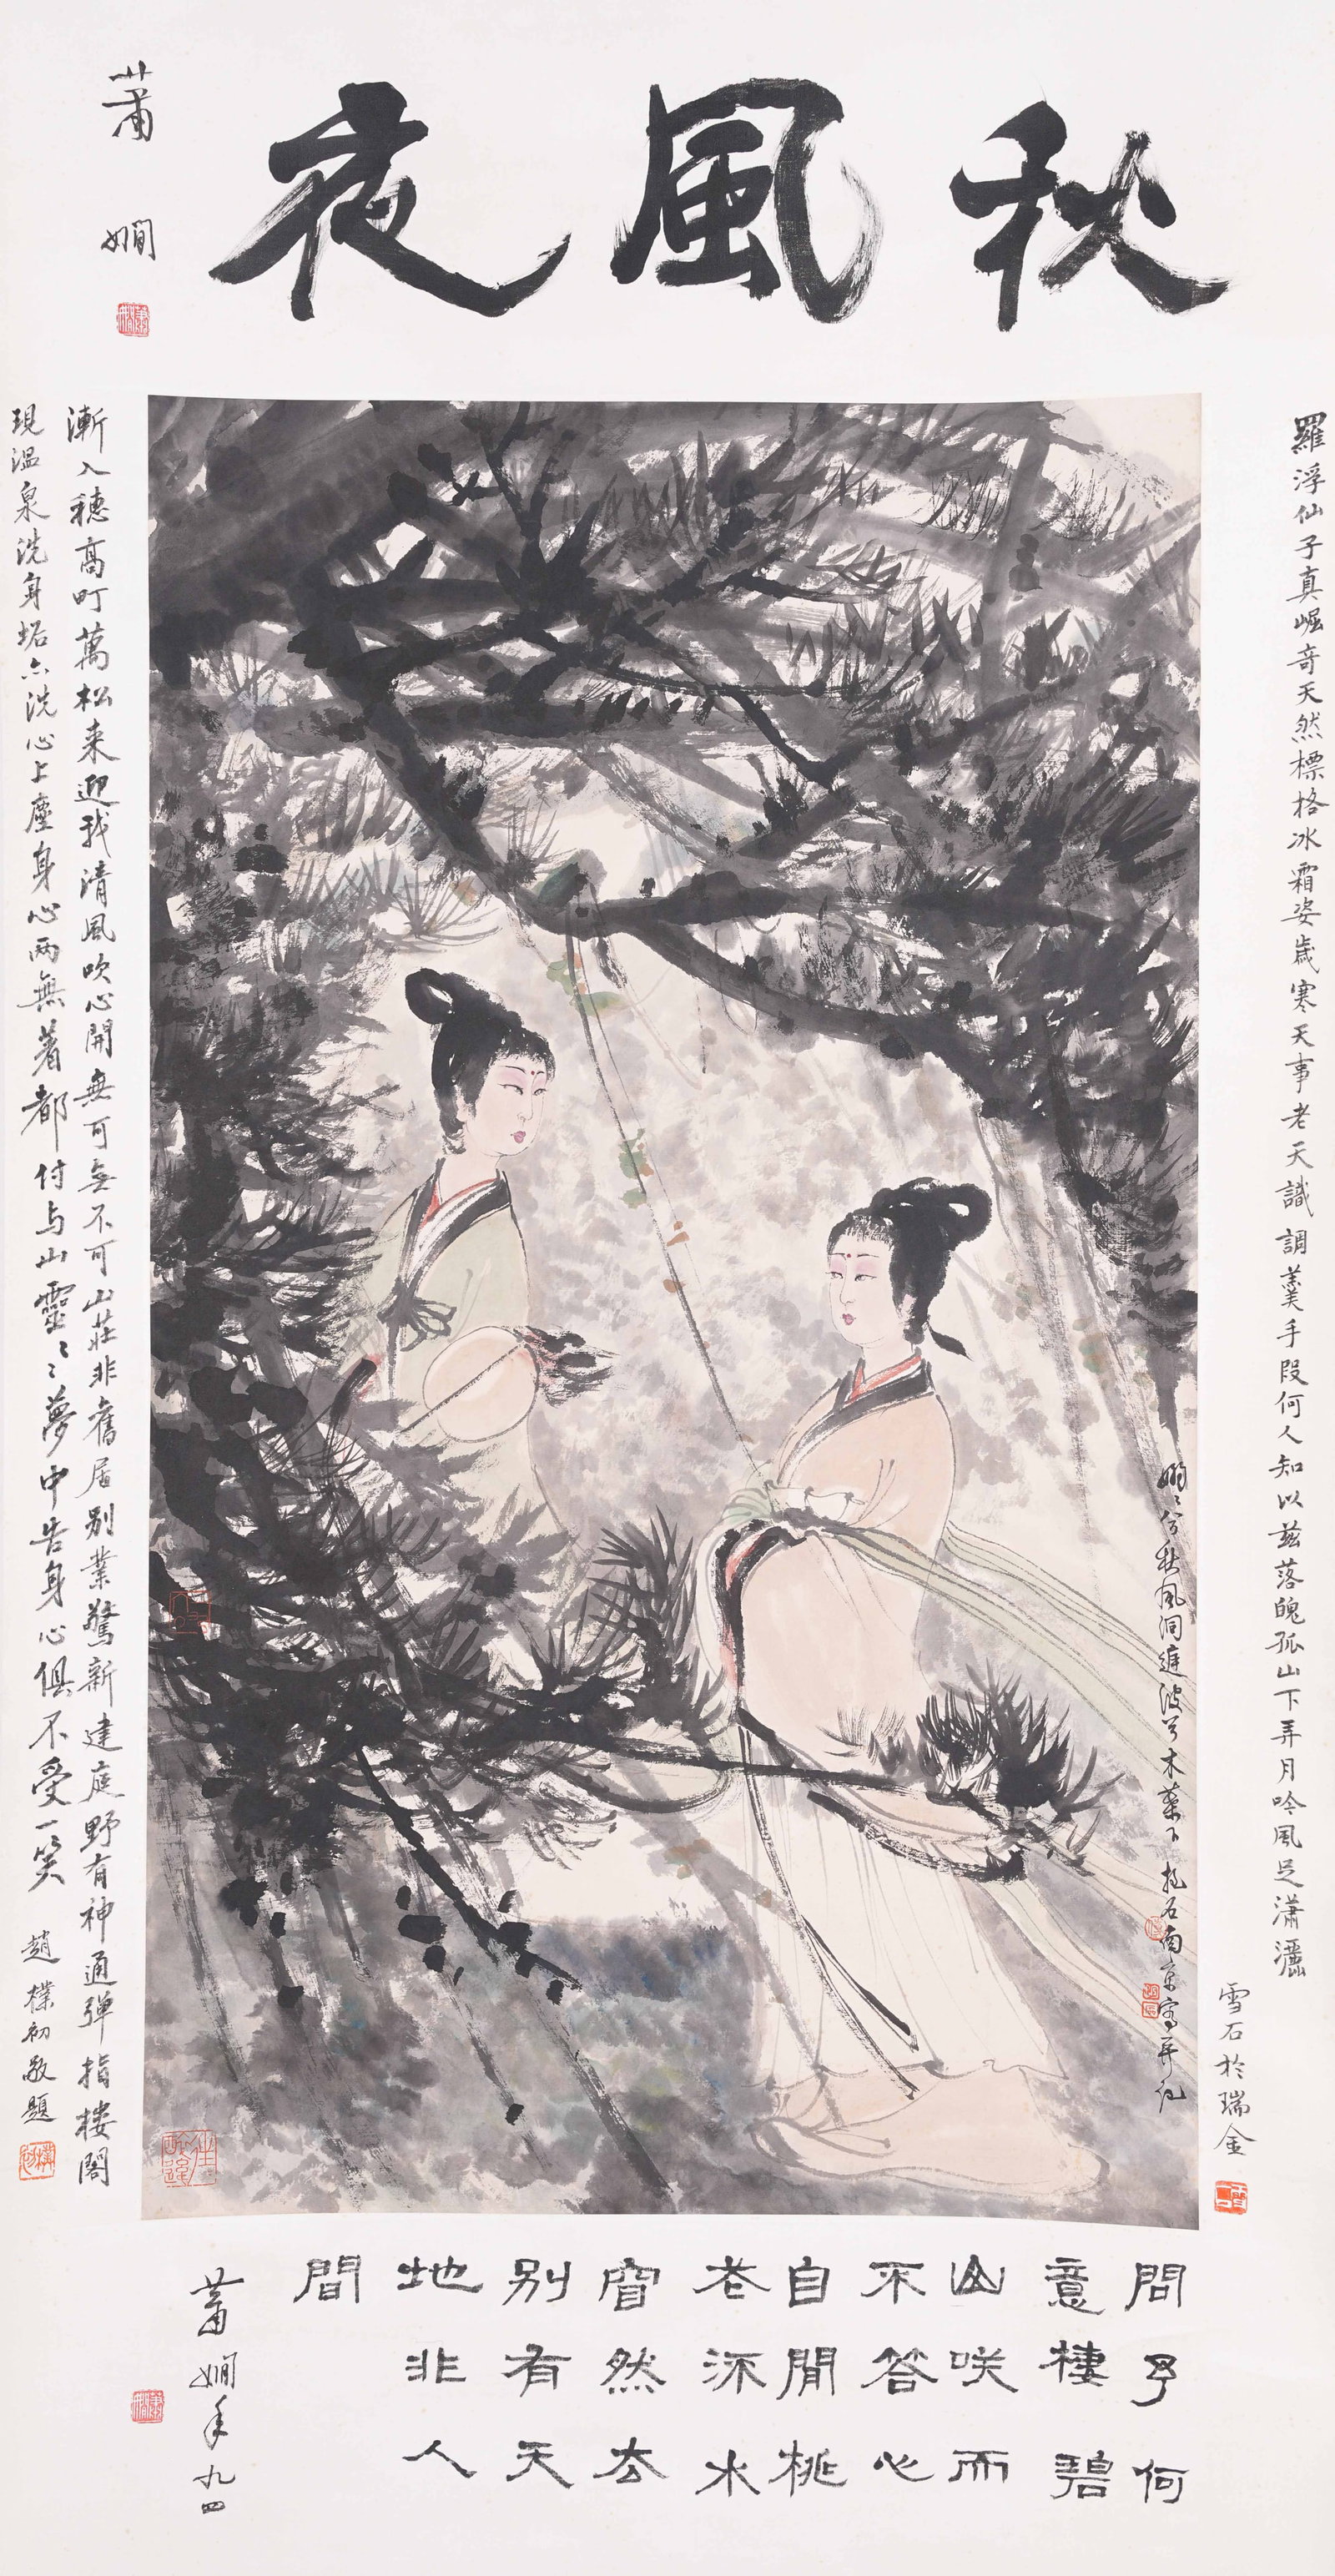 秋風夜
蕭嫻
羅浮仙子真崛奇天然標格冰霜姿歲寒天事老天識調羹手段何人知以茲落魄孤山下弄月吟風足瀟灑
雪石於瑞金
嫋〻兮秋風洞庭波兮木葉下抱石南京寫并記
漸入穗高町萬松来迎我清風吹心開無可無不可山莊非舊居別業驚新建庭野有神通彈指樓閣
現温泉洗身垢亦洗心上塵身心兩無著都付与山靈〻〻夢中告身心俱不受一笑趙樸初敬題
樸初
往往醉後
問予何
意棲碧
山咲而
不答心
自閒桃
花流水
窅然去
別有天
地非人
間
蕭嫻年九四